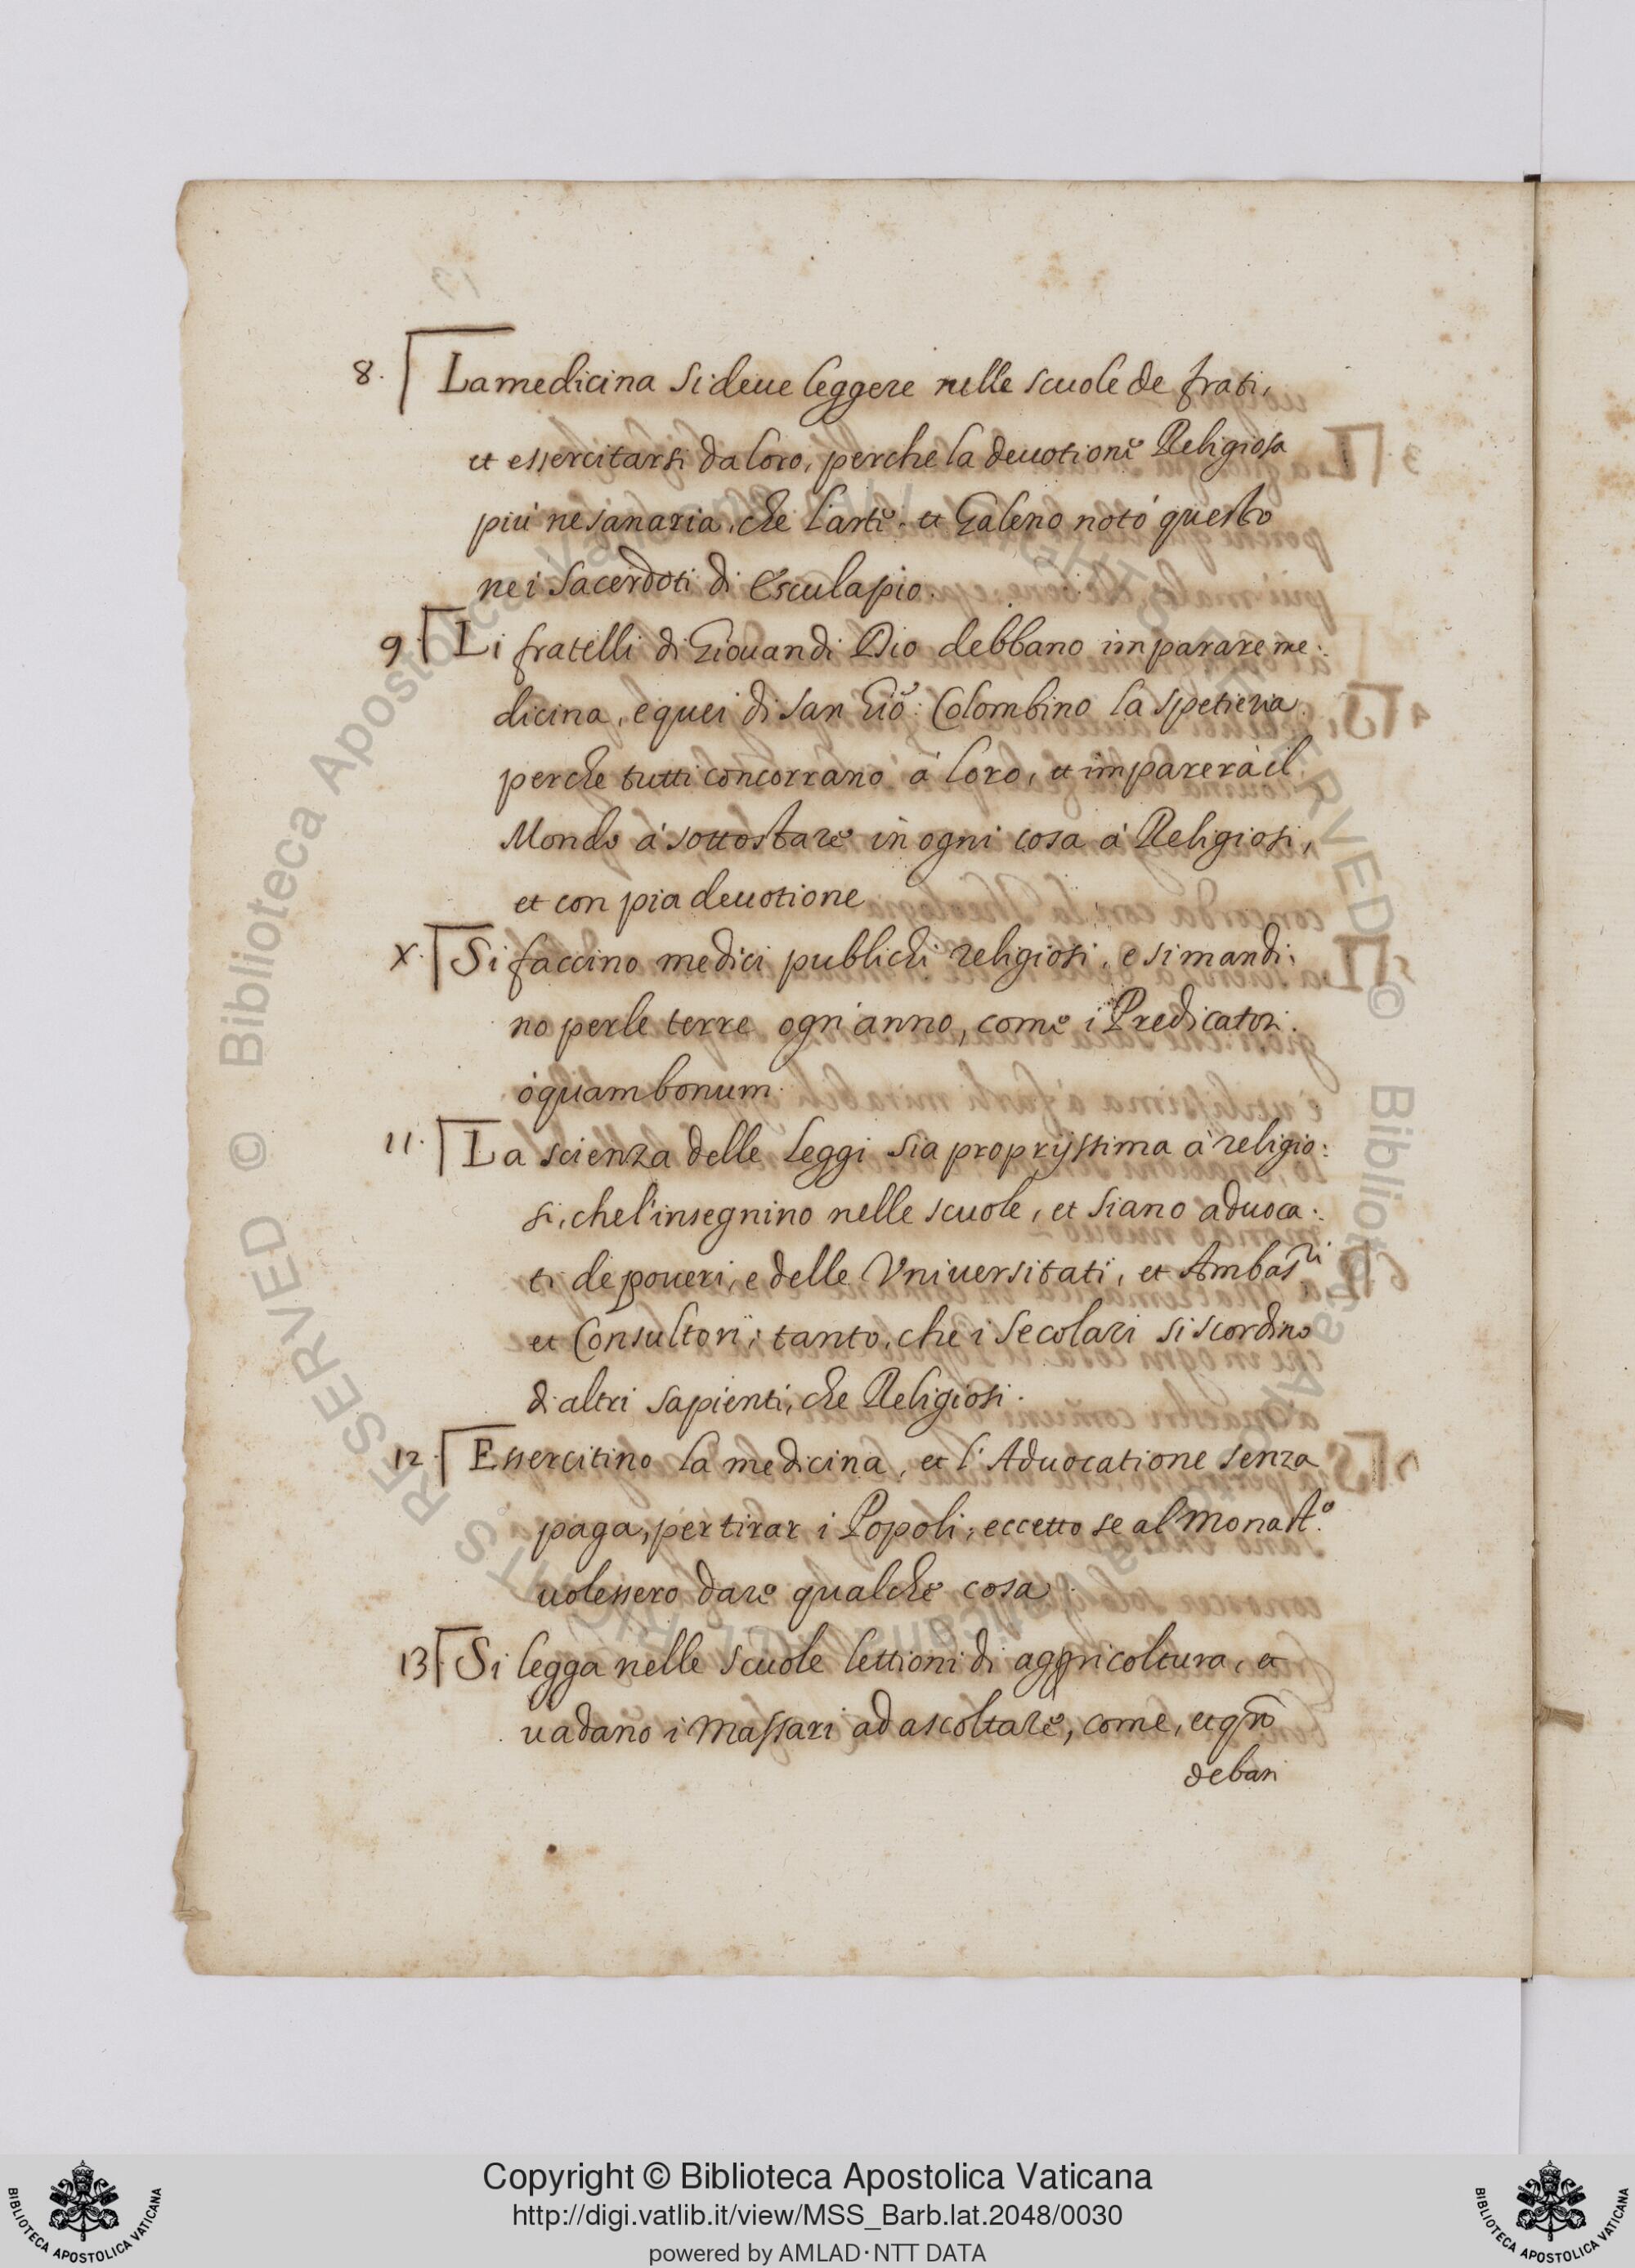 8. La medicina si deue leggere nelle scuole de frati,
et essercitarsi da loro, perche la deuotione Religiosa
più ne sanaria, che l'arte. et Galeno notò questo
nei Sacerdoti di Esculapio.
9. Li fratelli di Giouan di Dio debbano imparare me:
dicina, e quei di San Giõ: Colombino la spetieria.
perche tutti concorrano à loro, et imparerà il
Mondo à sottostare in ogni cosa à Religiosi,
et con pia deuotione
X. Si faccino medici publichi religiosi, e si mandi:
no per le terre ogn'anno, come i Predicatori.
ò quam bonum.
11. La scienza delle leggi sia proprijssima à religio:
si, che l'insegnino nelle scuole, et siano aduoca:
ti de poueri, e delle Vniuersitati, et Ambas.ri
et Consultori; tanto, che i Secolari si scordino
di altri sapienti, che Religiosi.
12. Essercitino la medicina, et l'Aduocatione senza
paga, per tirar i Popoli, eccetto se al Monast.o
uolessero dare qualche cosa.
13. Si legga nelle scuole lettioni di aggricoltura, et
uadano i Massari ad ascoltare, come, et qño
deban
Copyright © Biblioteca Apostolica Vaticana
http://digi.vatlib.it/view/MSS_Barb.lat.2048/0030
powered by AMLAD·NTT DATA
BIBLIOTECA APOSTOLICA VATICANA
BIBLIOTECA APOSTOLICA VATICANA